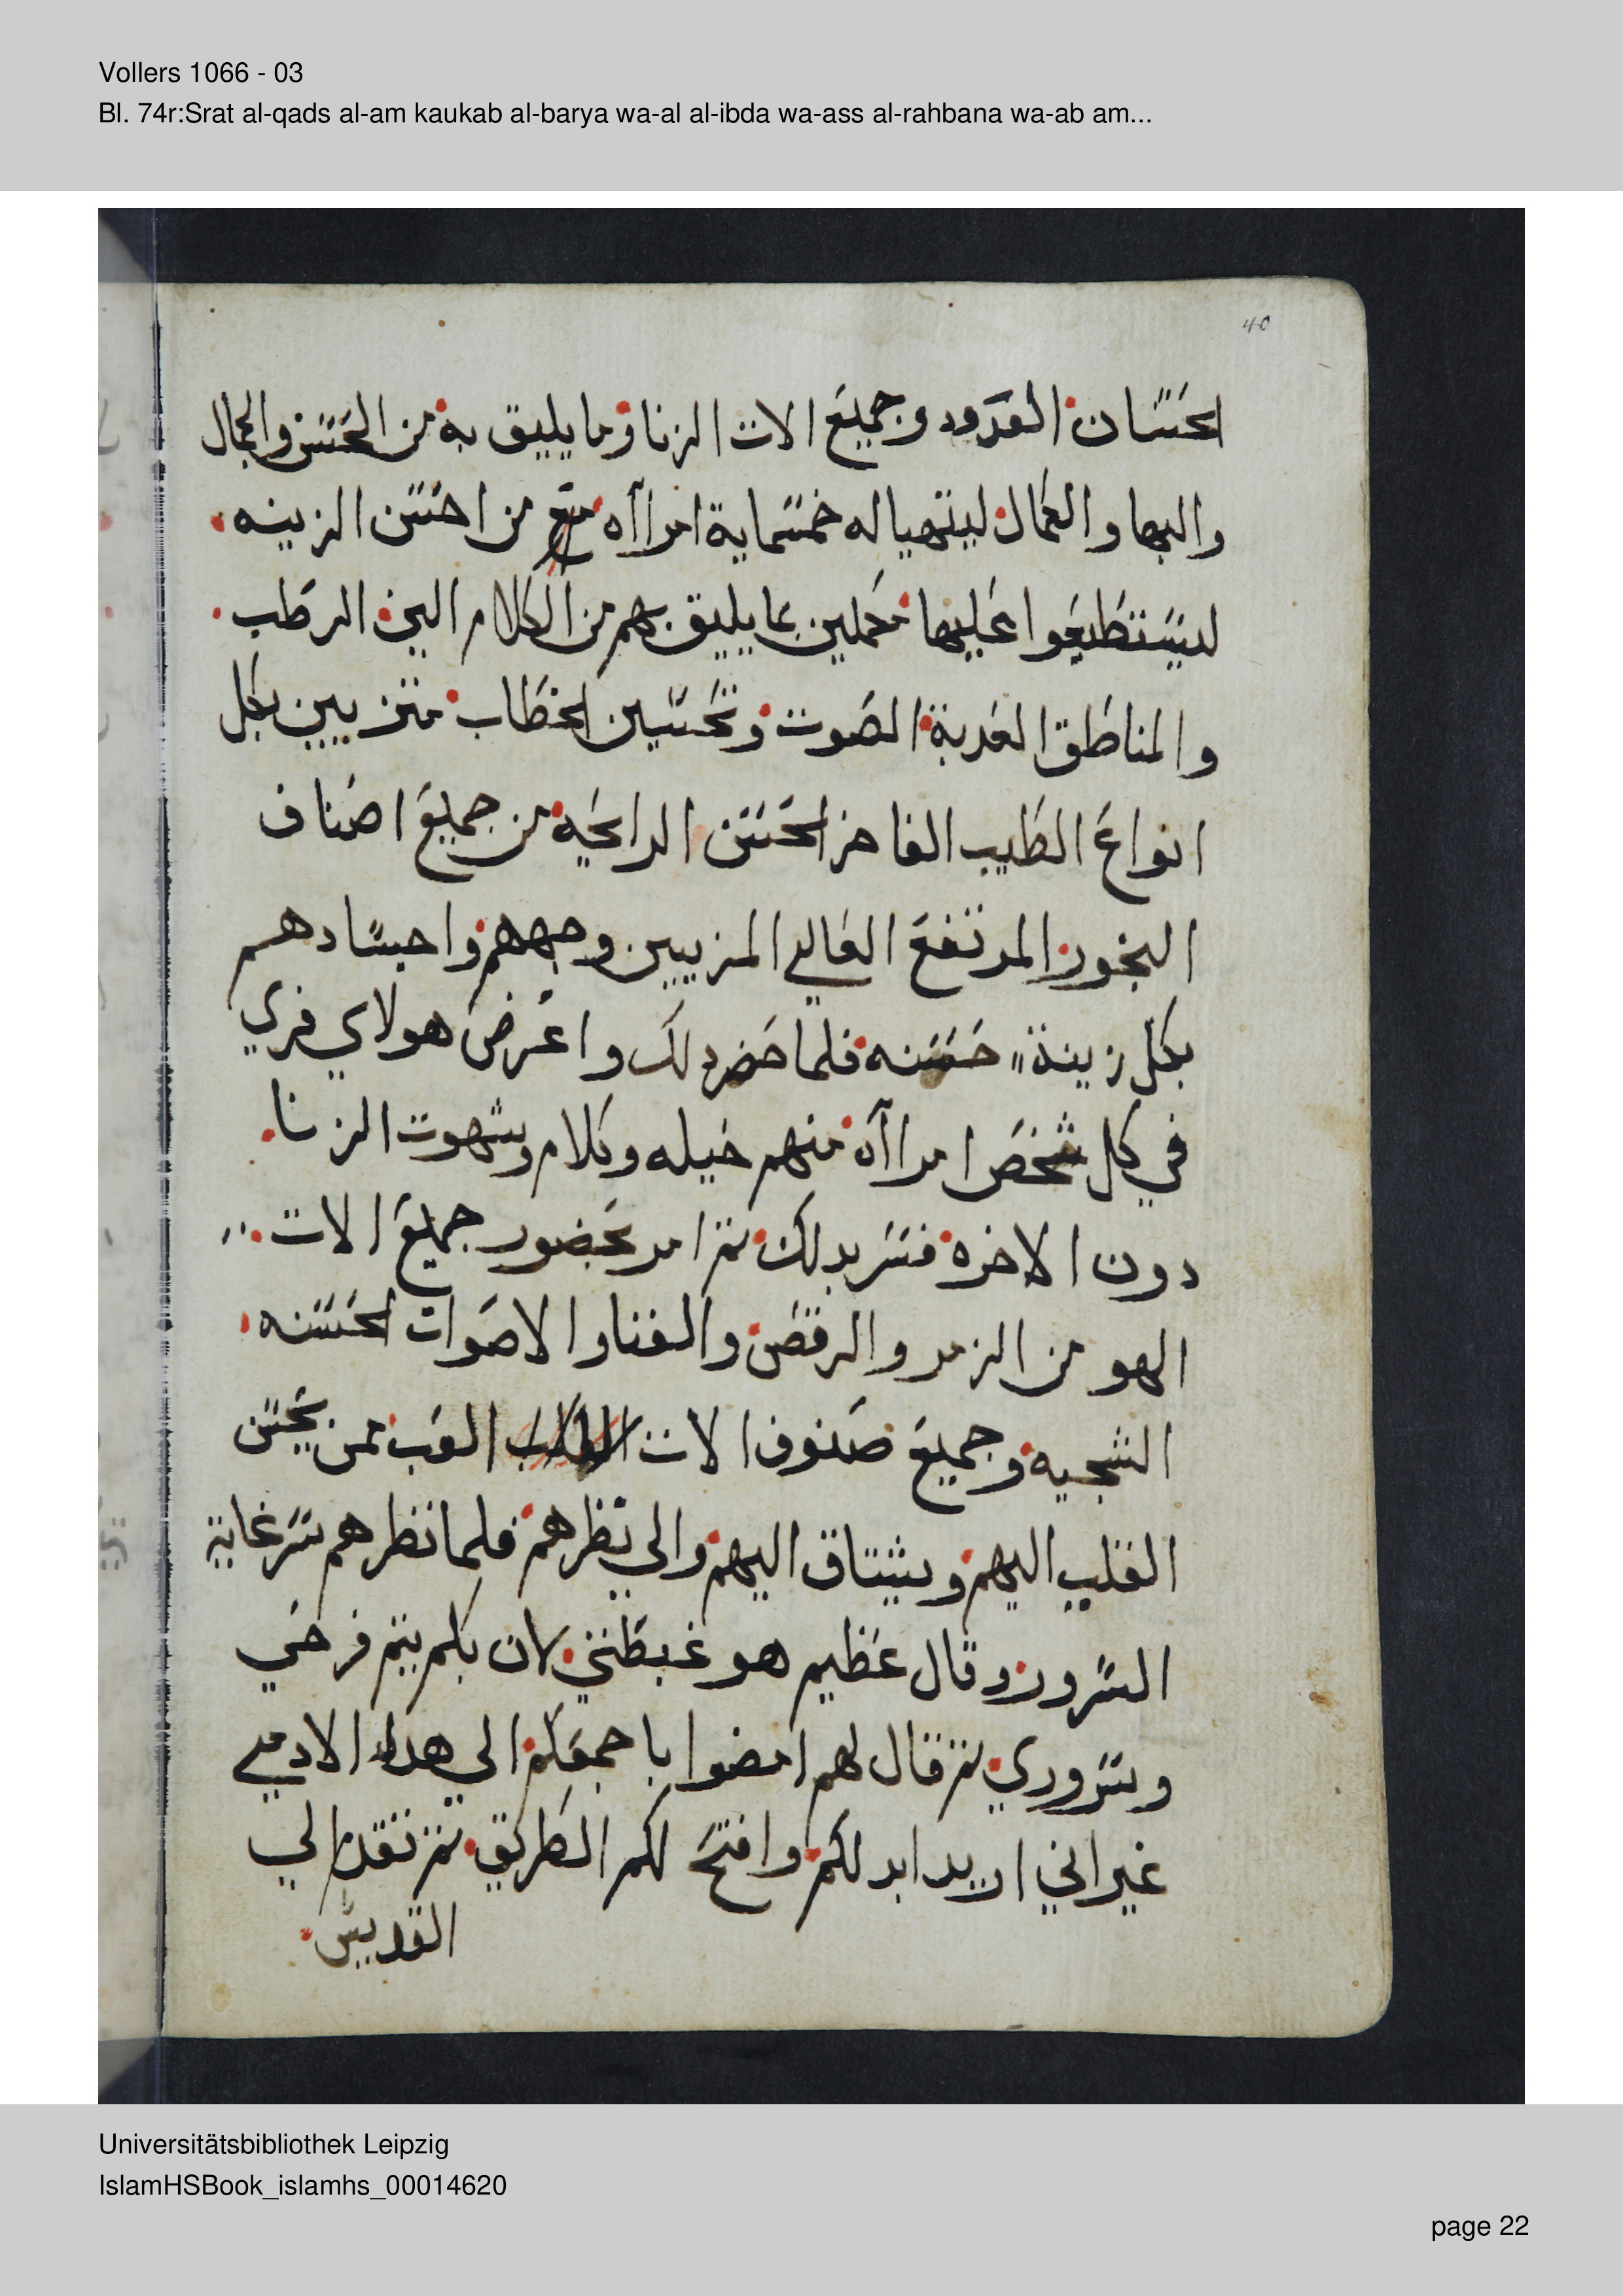 Vollers 1066 - 03
Bl. 74r:Srat al-qads al-am kaukab al-barya wa-al al-ibda wa-ass al-rahbana wa-ab am...
40
الحسان القدود وجميع الات الزنا وما يليق به من الحسن والجمال
والبها والكمال ليتهيا له خمسماية امراآه مع من احسن الزينه
ليستطيعوا عليها مكملين بما يليق بهم من الكلام الين الرطب
والمناطق العدبة الصوت وتحسين الخطاب متزيين بكل
انواع الطيب الفاخر الحسن الرايحه من جميع اصناف
البخور المرتفع الغالي المزيين وجههم واجسادهم
بكل زينة حسنه فلما حضر دلك واعرض هولاي فري
في كل شخص امراآه منهم حيله وكلام وشهوت الزنا
دون الاخره فسر بدلك تم امر بحضور جميع الات
الهو من الزمر والرقص والغنا والاصوات الحسنه
الشجيه وجميع صنوف الات العب ممن يحسن
القلب اليهم ويشتاق اليهم والي نظرهم فلما نظرهم سر غاية
السرور وقال عظيم هو غبطتي لان بكم يتم فرحي
وسروري تم قال لهم امضوا باجمعكم الي هدا الادمي
غير اني اريد ابد لكم وافتح لكم الطريق تم تقدم الي
القديس
Universitätsbibliothek Leipzig
IslamHSBook_islamhs_00014620
page 22